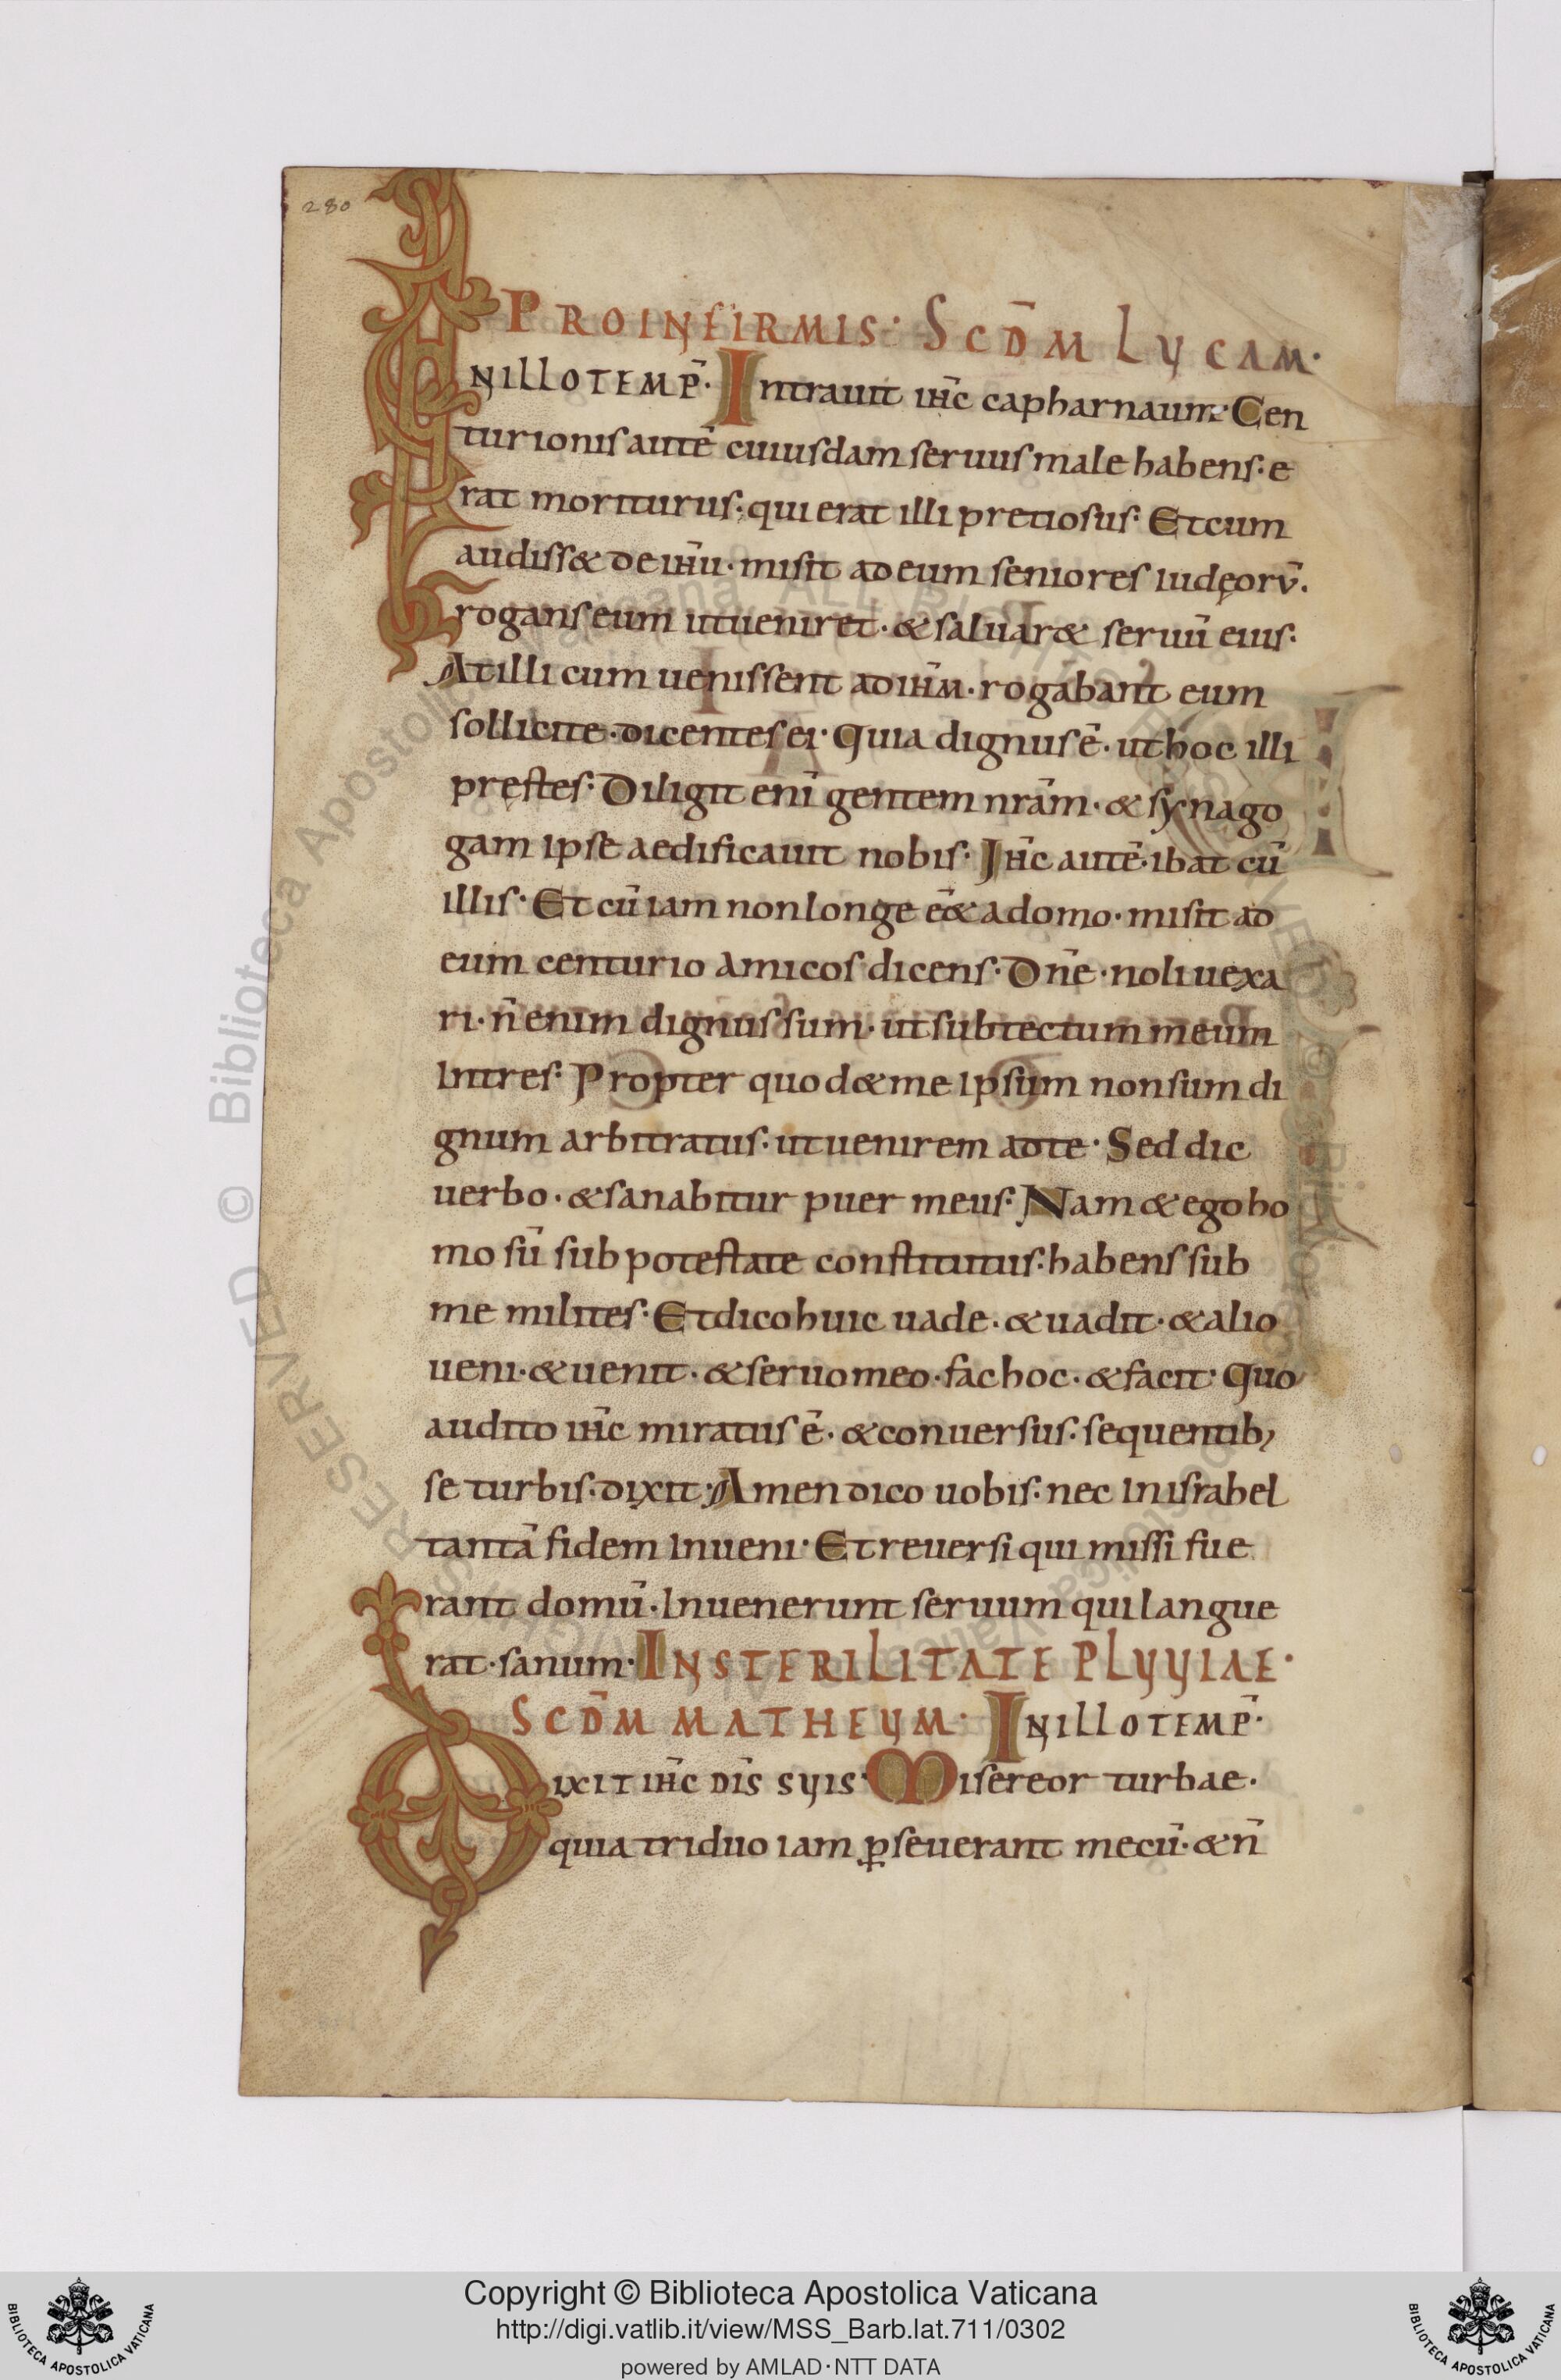 280
PRO INFIRMIS· SCD̄M LUCAM·
INILLO TEMP̄· Intrauit ih̄c capharnaum· Cen
turionis autē cuiusdam seruus male habens· e
rat moriturus· qui erat illi pretiosus· Et cum
audiss& de ih̄u· misit ad eum seniores iudęorū·
rogans eum ut ueniret· & saluar& seruū eius·
At illi cum uenissent ad ih̄m· rogabant eum
sollicite· dicentes ei· Quia dignus ē· ut hoc illi
pręstes· Diligit enī gentem nr̄am· & synago
gam ipse aedificauit nobis· Ih̄c autē· ibat cū
illis· Et cū iam non longe ē& a domo· misit ad
eum centurio amicos dicens· Dn̄e· noli uexa
ri· n̄ enim dignus sum· ut sub tectum meum
intres· Propter quod & me ipsum non sum di
gnum arbitratus· ut uenirem ad te· Sed dic
uerbo· & sanabitur puer meus· Nam & ego ho
mo sū sub potestate constitutus· habens sub
me milites· Et dico huic uade· & uadit· & alio
ueni· & uenit· & seruo meo· fac hoc· & facit· Quo
audito ih̄c miratus ē· & conuersus· sequentib;
se turbis· dixit· Amen dico uobis· nec in israhel
tantā fidem inueni· Et reuersi qui missi fue
rant domū· Inuenerunt seruum qui langue
rat· sanum· IN STERILITATE PLUUIAE·
SCD̄M MATHEUM· IN ILLO TEMP̄·
DIXIT IH̄C DIS̄ SUIS· Misereor turbae·
quia triduo iam ꝑseuerant mecū· & n̄
© Biblioteca Apostolica Vaticana ALL RIGHTS RESERVED
Copyright © Biblioteca Apostolica Vaticana
http://digi.vatlib.it/view/MSS_Barb.lat.711/0302
powered by AMLAD·NTT DATA
BIBLIOTECA APOSTOLICA VATICANA
BIBLIOTECA APOSTOLICA VATICANA